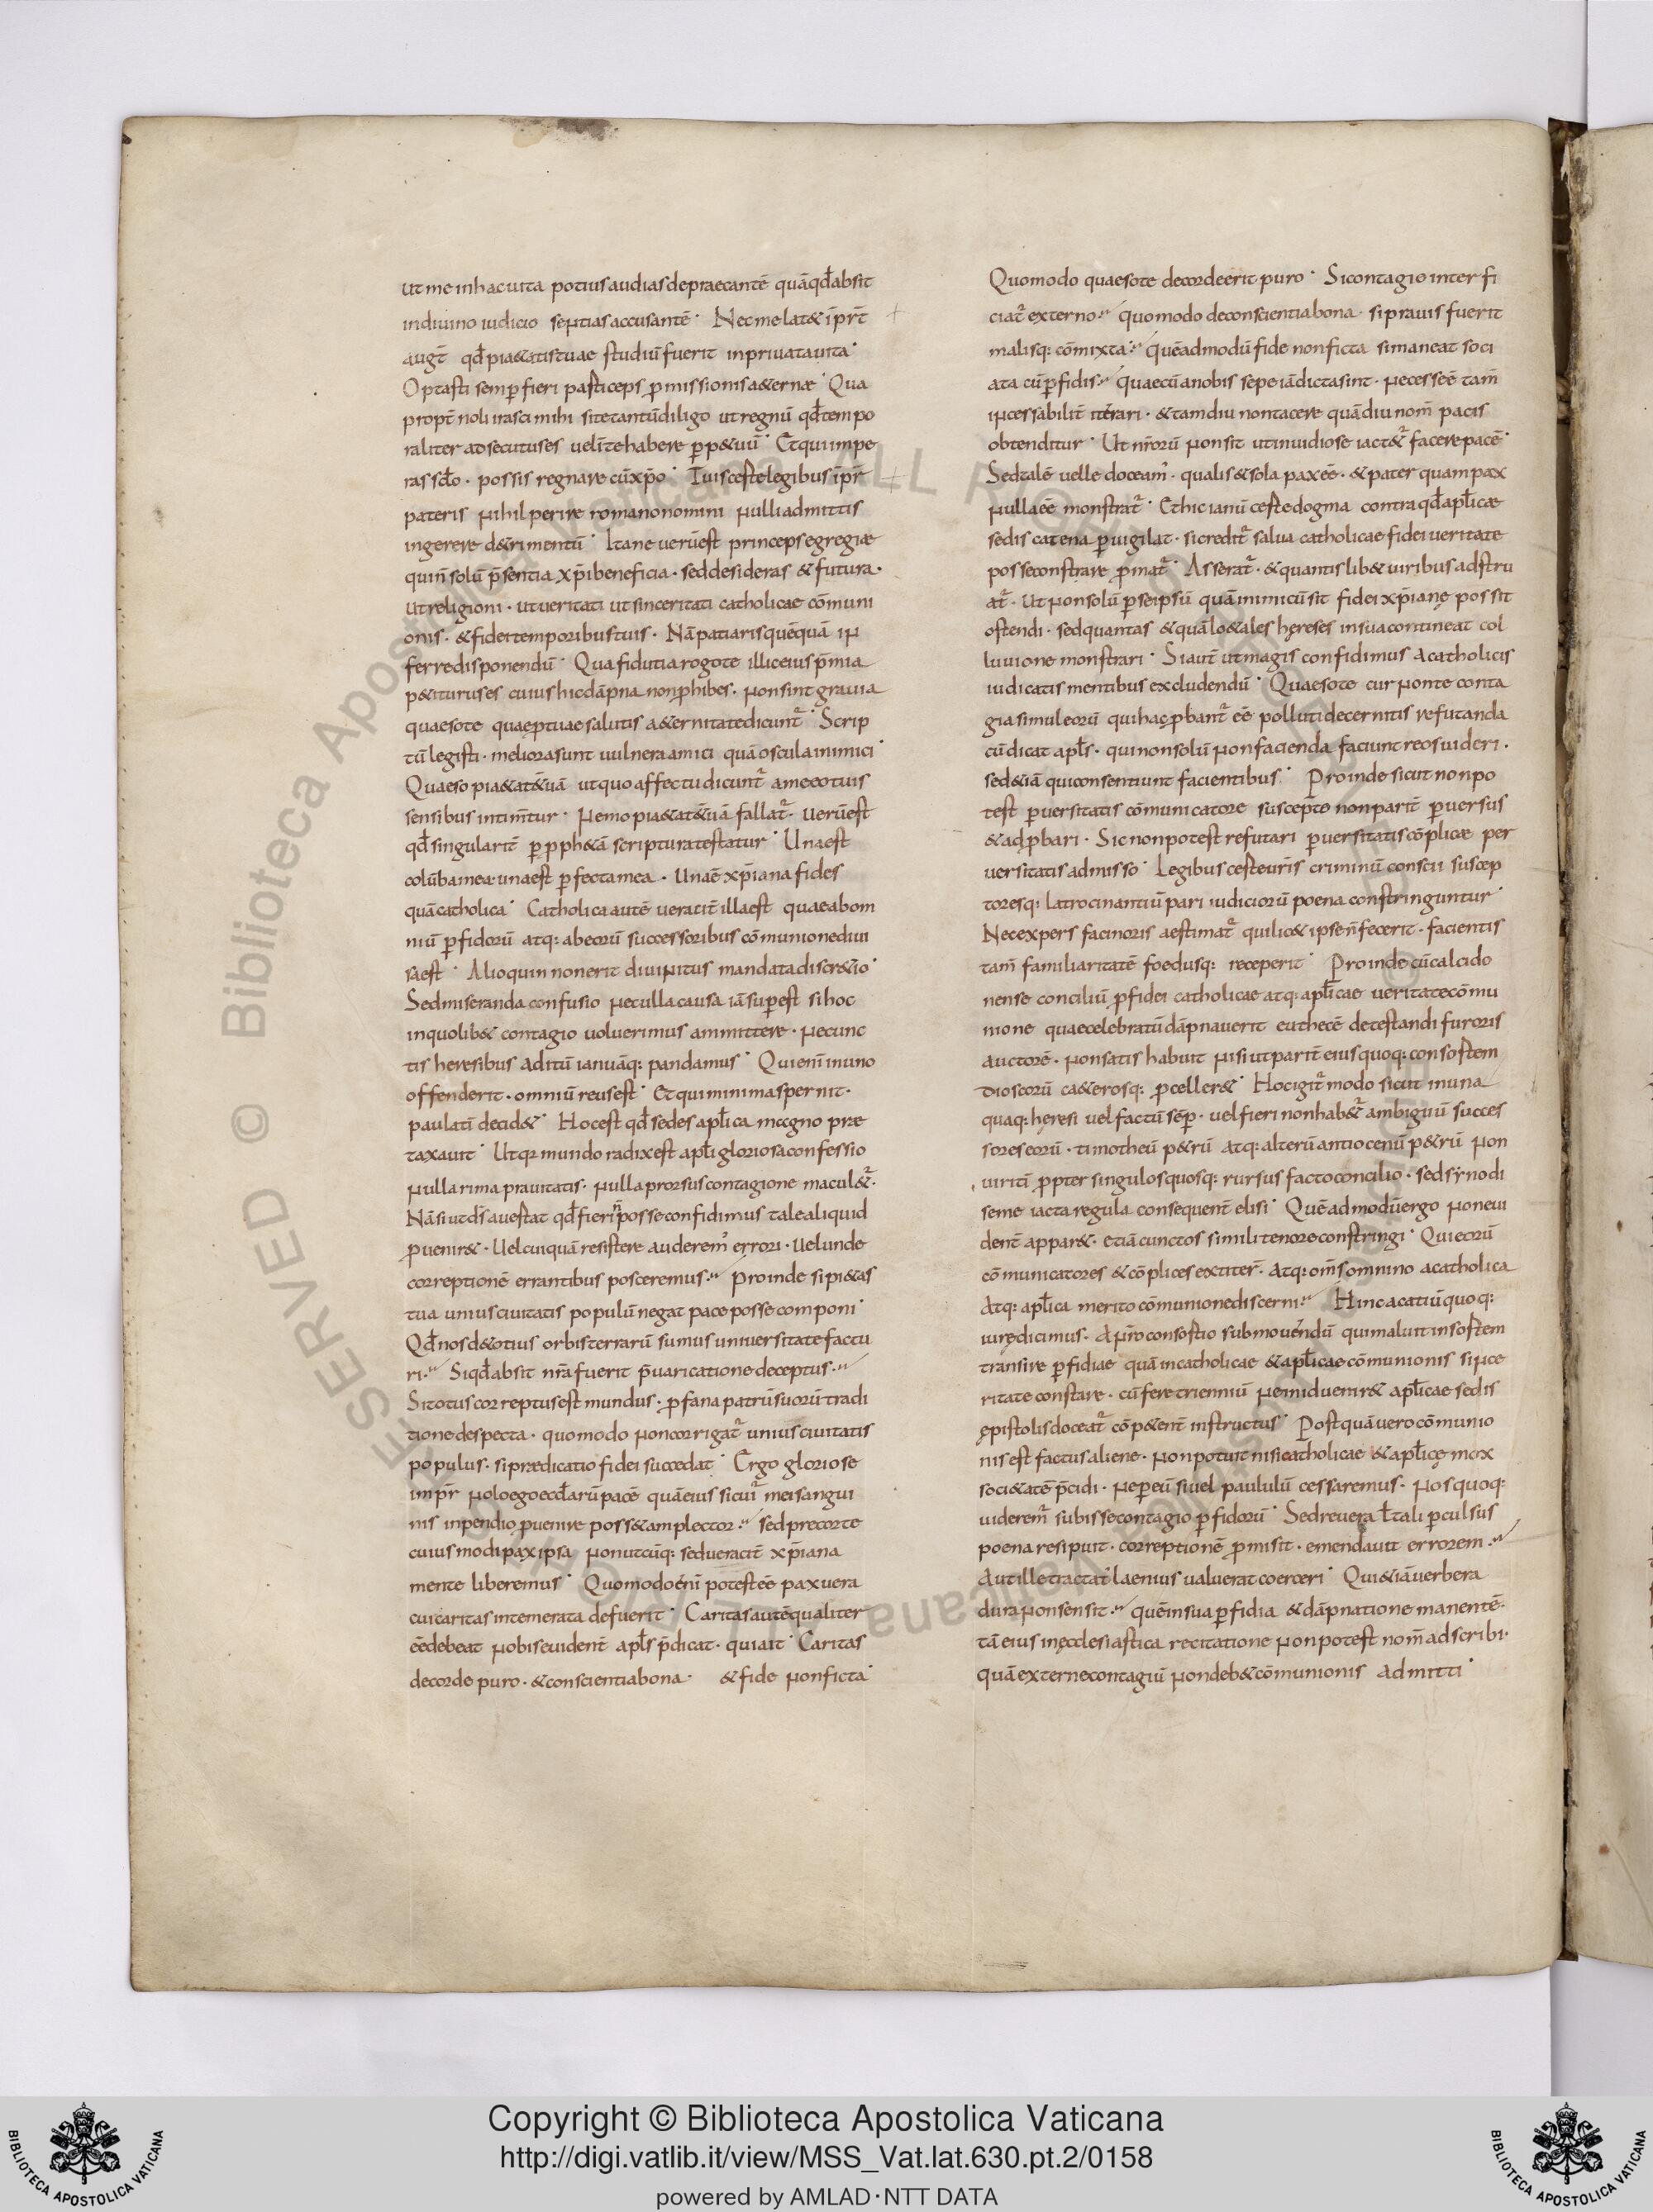 ut me inhacuita potius audias depraecantē quā qđ absit
indiuino iudicio sentias accusantē· Nec me lat& īpr̄t
augt̄ qđ pia&atis tuae studiū fuerit inpriuata uita·
Optasti semp fieri particeps pmissionis a&ernæ· Qua
propt̄ noli irasci mihi si te tantū diligo ut regnū qđ tempo
raliter adsecutus es uelīte habere pp&uū· Et qui impe
ras sc̄lo· possis regnare cū xp̄o· Iuis certe legibus īpr̄
pateris nihil perire romano nomini nulli admittis
ingerere d&rimentū· Itane uerū est princeps egregiæ
quin̄ solū p̄sentia xp̄i beneficia· sed desideras & futura·
ut religioni· ut ueritati ut sinceritati catholicae cōmuni
onis· & fidei temporibus tuis· Nā patiaris quēquā in
ferre disponendū· Qua fidutia rogo te illic eius p̄mia
p&iturus es cuius hic dāpna non phibes· non sint grauia
quaeso te quae p tuae salutis a&ernitate dicunt̄· Scrip
tū legisti· meliora sunt uulnera amici quā oscula inimici·
Quaeso pia&at̄ &uā ut quo affectu dicunt̄ a me eo tuis
sensibus intim̄tur· Nemo pia&at̄ &uā fallat̄· uerū est
qđ singularit̄ p pph&ā scriptura testatur· Una est
colūba mea· una est pfecta mea· Una ē xp̄iana fides
quā catholica· Catholica autē ueracit̄ illa est quae ab om
niū pfidorū atq: ab eorū successoribus cōmunione diui
sa est· Alioquin non erit diuinitus mandata discr&io·
Sed miseranda confusio nec ulla causa iā sup est si hoc
in quolib& contagio uoluerimus ammittere· ne cunc
tis heresibus aditū ianuāq: pandamus· Qui eni̅ in uno
offenderit· omniū reus est· Et qui minima spernit·
paulati̅ decid&· Hoc est qđ sedes apl̄ica magno præ
tauauit· Ut qr mundo radix est apl̄i gloriosa confessio
nulla rima prauitatis· nulla prorsus contagione macul&̄·
Nā si ut d̄s auertat qđ fieri n̄ posse confidimus tale aliquid
puenir&· Uel cuiquā resistere auderem᾽ errori· uel unde
correptionē errantibus posceremus·" Proinde si pi&as
tua unius ciuitatis populū negat pace posse componi·
Qđ nos d& otius orbis terrarū sumus uniuersitate factu
ri·" Si qđ absit nr̄a fuerit p̄uaricatione deceptus·"
Si totus correptus est mundus· pfana patrū suorū tradi
tione despecta· quomodo non corrigat̄ unius ciuitatis
populus· si prædicatio fidei succedat· Ergo gloriose
impr̄ nolo ego eccl̄arū pacē quā eius sic uir̄ mei sangui
nis inpendio puenire poss& amplector·" sed precor te
cuius modi pax ipsa non utcūq: sed ueracit̄ xp̄iana
mente liberemus· Quomodo eni̅ potest eē pax uera
cui caritas intemerata defuerit· Caritas autē qualiter
eē debeat nobis euident̄ apl̄s p̄dicat· qui ait· Caritas
de corde puro· & conscientia bona· & fide non ficta·
Quomodo quaeso te de corde erit puro· Si contagio interfi
ciat̄ externo·" quomodo de conscientia bona· si prauis fuerit
malisq: cōmixta·" quēadmodū fide non ficta si maneat soci
ata cū pfidis·" quae cū a nobis sepe iā dicta sint· necesse ē tam̄
incessabilit̄ iterari· & tam diu non tacere quādiu nom̄ pacis
obtenditur· Ut nr̄orū non sit ut inuidiose iact&̄ facere pacē·
Sed talē uelle doceam᾽· qualis & sola pax ēe· & pater quam pax
nulla ēe monstrat̄· Ethicianū certe dogma contra qđ apl̄icæ
sedis catena puigilat· si credit̄ salua catholicae fidei ueritate
posse constrare pmat̄· Asserat̄· & quantis lib& uiribus adstru
at̄· Ut non solū p se ipsū quā inimicū sit fidei xp̄ianę possit
ostendi· sed quantas & quā lo&ales hęreses in sua contineat col
luuione monstrari· Si aut̄ ut magis confidimus a catholicis
iudicatis mentibus excludendū· Quaeso te cur non te conta
gia simul eorū qui hac pbant̄ ēe polluti decernitis refutanda
cū dicat apl̄s· qui non solū non facienda faciunt reos uideri·
sed &iā qui consentiunt facientibus· Proinde sicut non po
test puersitatis cōmunicatore suscepto non parit̄ puersus
& adpbari· Sic non potest refutari puersitatis cōplicæ per
uersitatis admisso· Legibus certe ur̄is criminū conscii suscep
toresq: latrocinantiū pari iudiciorū poena constringuntur·
Nec expers facinoris aestimat̄ qui lic& ipse n̄ fecerit· facientis
tam̄ familiaritatē foedusq: receperit· Proinde cū calcido
nense conciliū pfidei catholicae atq: apl̄icae ueritate cōmu
nione quae celebratū dāpnauerit euthecē detestandi furoris
auctorē· non satis habuit nisi ut parit̄ eius quoq: consortem
dioscorū ca&erosq: pceller&· Hoc igit̄ modo sicut in una
quaq: hęresi uel factū sēp· uel fieri non hab&̄ ambiguū succes
sores eorū· timotheū p&rū atq: alterū antiocenū p&rū non
uiriti̅ ppter singulos quosq: rursus facto concilio· sed synodi
semel acta regula consequent̄ elisi· Quē admodū ergo non eui
dent̄ appar&· etiā cunctos simili tenore constringi· Qui eorū
cōmunicatores & cōplices extiter̄· Atq: om̄s omnino a catholica
Atq: apl̄ica merito cōmunione discerni·" Hinc acatiū quoq:
iurę dicimus· A nr̄o consortio submouendū qui maluit in sortem
transire pfidiae quā in catholicae & apl̄icae cōmunionis since
ritate constare· cū fere trienniū ne in id uenir& apl̄icae sedis
ępistolis doceat̄ cōp&ent̄ instructus· Postquā uero cōmunio
nis est factus aliene· non potuit nisi catholicae & apl̄icę mox
soci&atē p̄cidi· ne p eū si uel paululū cessaremus· nos quoq:
uiderem̄ subisse contagio pfidorū· Sed reuera ł tali pculsus
poena resipuit· correptionē pmisit· emendauit errorem·"
Aut ille tractat̄ laenius ualuerat coerceri· Qui &iā uerbera
dura non sensit·" quē in sua pfidia & dāpnatione manentē·
tā eius in ęcclesiastica recitatione non potest nom̄ adscribi·
quā externe contagiū non deb& cōmunionis admitti·
Copyright © Biblioteca Apostolica Vaticana
http://digi.vatlib.it/view/MSS_Vat.lat.630.pt.2/0158
powered by AMLAD·NTT DATA
BIBLIOTECA APOSTOLICA VATICANA
BIBLIOTECA APOSTOLICA VATICANA